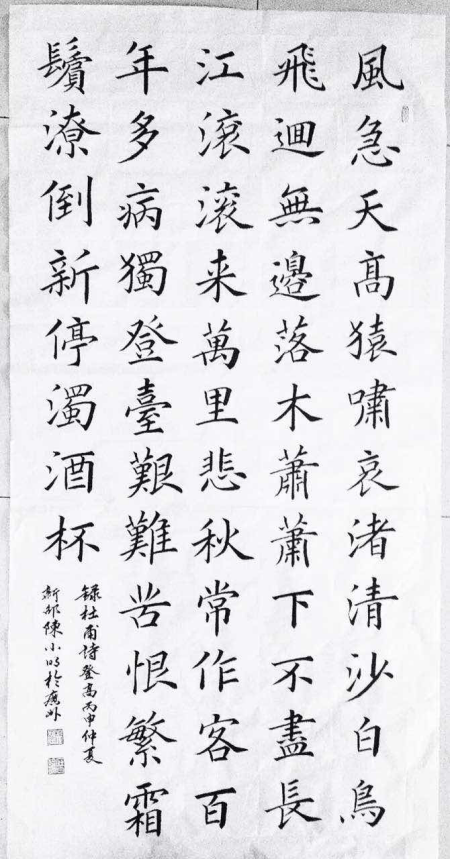 風急天高猿嘯哀渚清沙白鳥
飛迴無邊落木蕭蕭下不盡長
江滾滾来萬里悲秋常作客百
年多病獨登臺艱難苦恨繁霜
鬢潦倒新停濁酒杯
録杜甫詩登高丙申仲夏
新邵陳小明於廣州